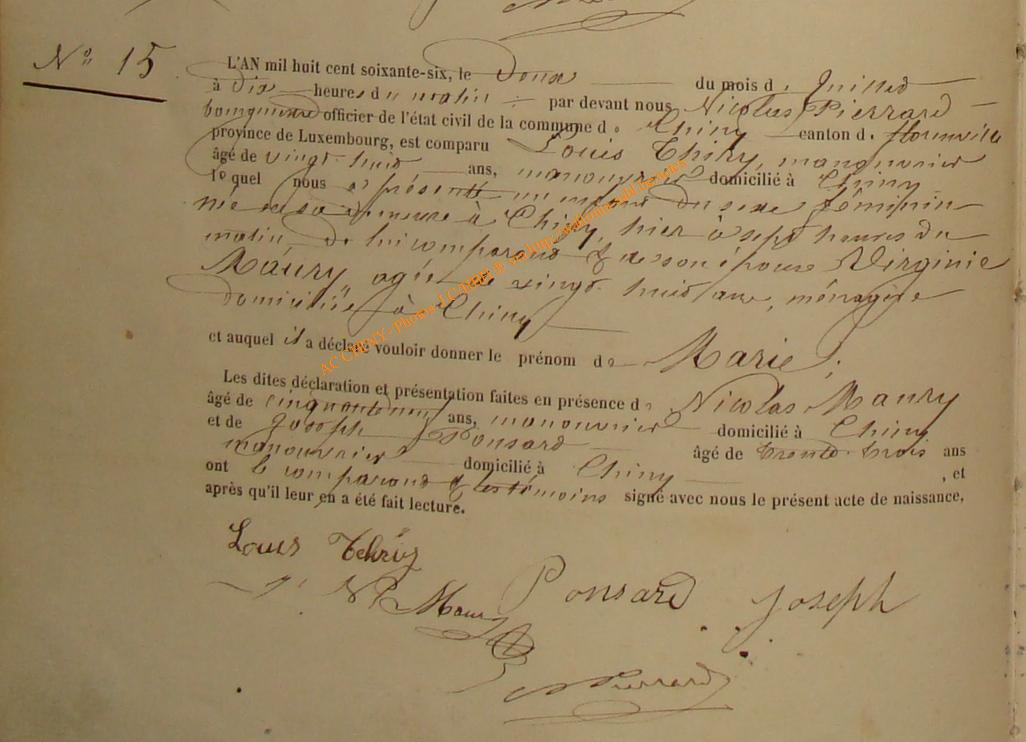 N° 15
L'AN mil huit cent soixante-six, le Doux du mois d. Juillet
à dix heures du matin par devant nous Nicolas Pierrard
bourgmestre officier de l'état civil de la commune de Chiny canton d. florenville
province de Luxembourg, est comparu Louis Thiry, manouvrier
âgé de vingt-huit ans, manouvrier domicilié à Chiny
lequel nous a présenté un enfant du sexe féminin
née en sa demeure à Chiny, hier à sept heures du
matin, de lui comparant & de son épouse Virginie
Maury agée de vingt huit ans, ménagère
domiciliée à Chiny
et auquel il a déclaré vouloir donner le prénom de Marie;
Les dites déclaration et présentation faites en présence de Nicolas Maury
âgé de ans, manouvrier domicilié à Chiny
et de Joseph Ponsard âgé de trente-trois ans
manouvrier domicilié à Chiny, et
ont le comparant & les témoins signé avec nous le présent acte de naissance,
après qu'il leur en a été fait lecture.
Louis Thiry
N Maury Ponsard Joseph
N Pierrard
AC CHINY - Photos